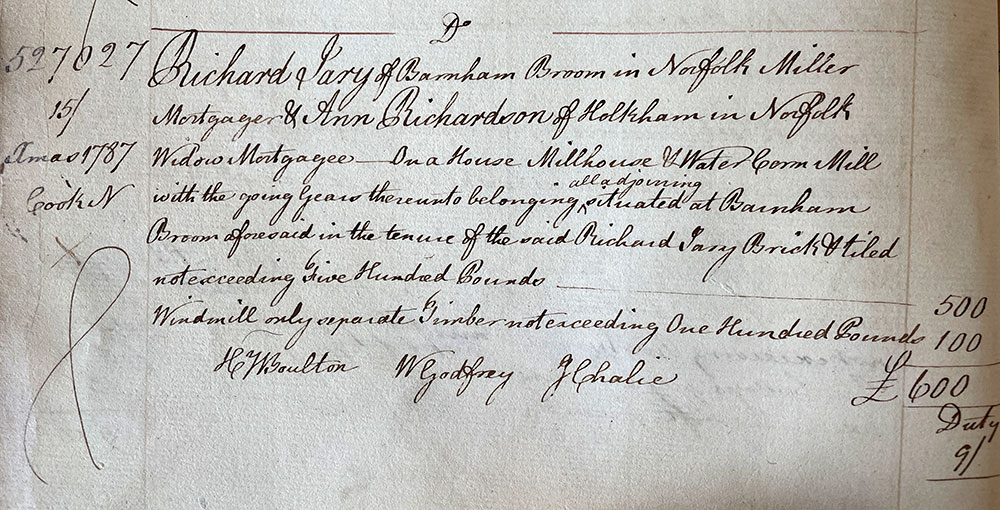 Do
527027 Richard Jary of Barnham Broom in Norfolk Miller
15/ Mortgager & Ann Richardson of Holkham in Norfolk
Xmas 1787 Widow Mortgagee — On a House Millhouse & Water Corn Mill
Cook N with the going Gears thereunto belonging all adjoining situated at Barnham
Broom aforesaid in the tenure of the said Richard Jary Brick & tiled
not exceeding Five Hundred Pounds — 500
Windmill only separate Timber not exceeding One Hundred Pounds 100
H W Boulton W Godfrey J Chalie £ 600
Duty
9/